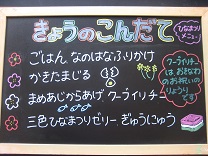 きょうのこんだて
ひなまつり
メニュー
ごはん なのはなふりかけ
かきたまじる
まめあじからあげ クーブイリチー
三色ひなまつりゼリー ぎゅうにゅう
クーブイリチー
は、おきなわ
のお祝いの
りょうり です